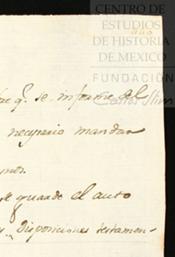 CENTRO DE
ESTUDIOS
DE HISTORIA
DE MEXICO
FUNDACIÓN
Carlos Slim
q. se informe al
necesario mandar
se guarde el auto
disposiciones testamen-